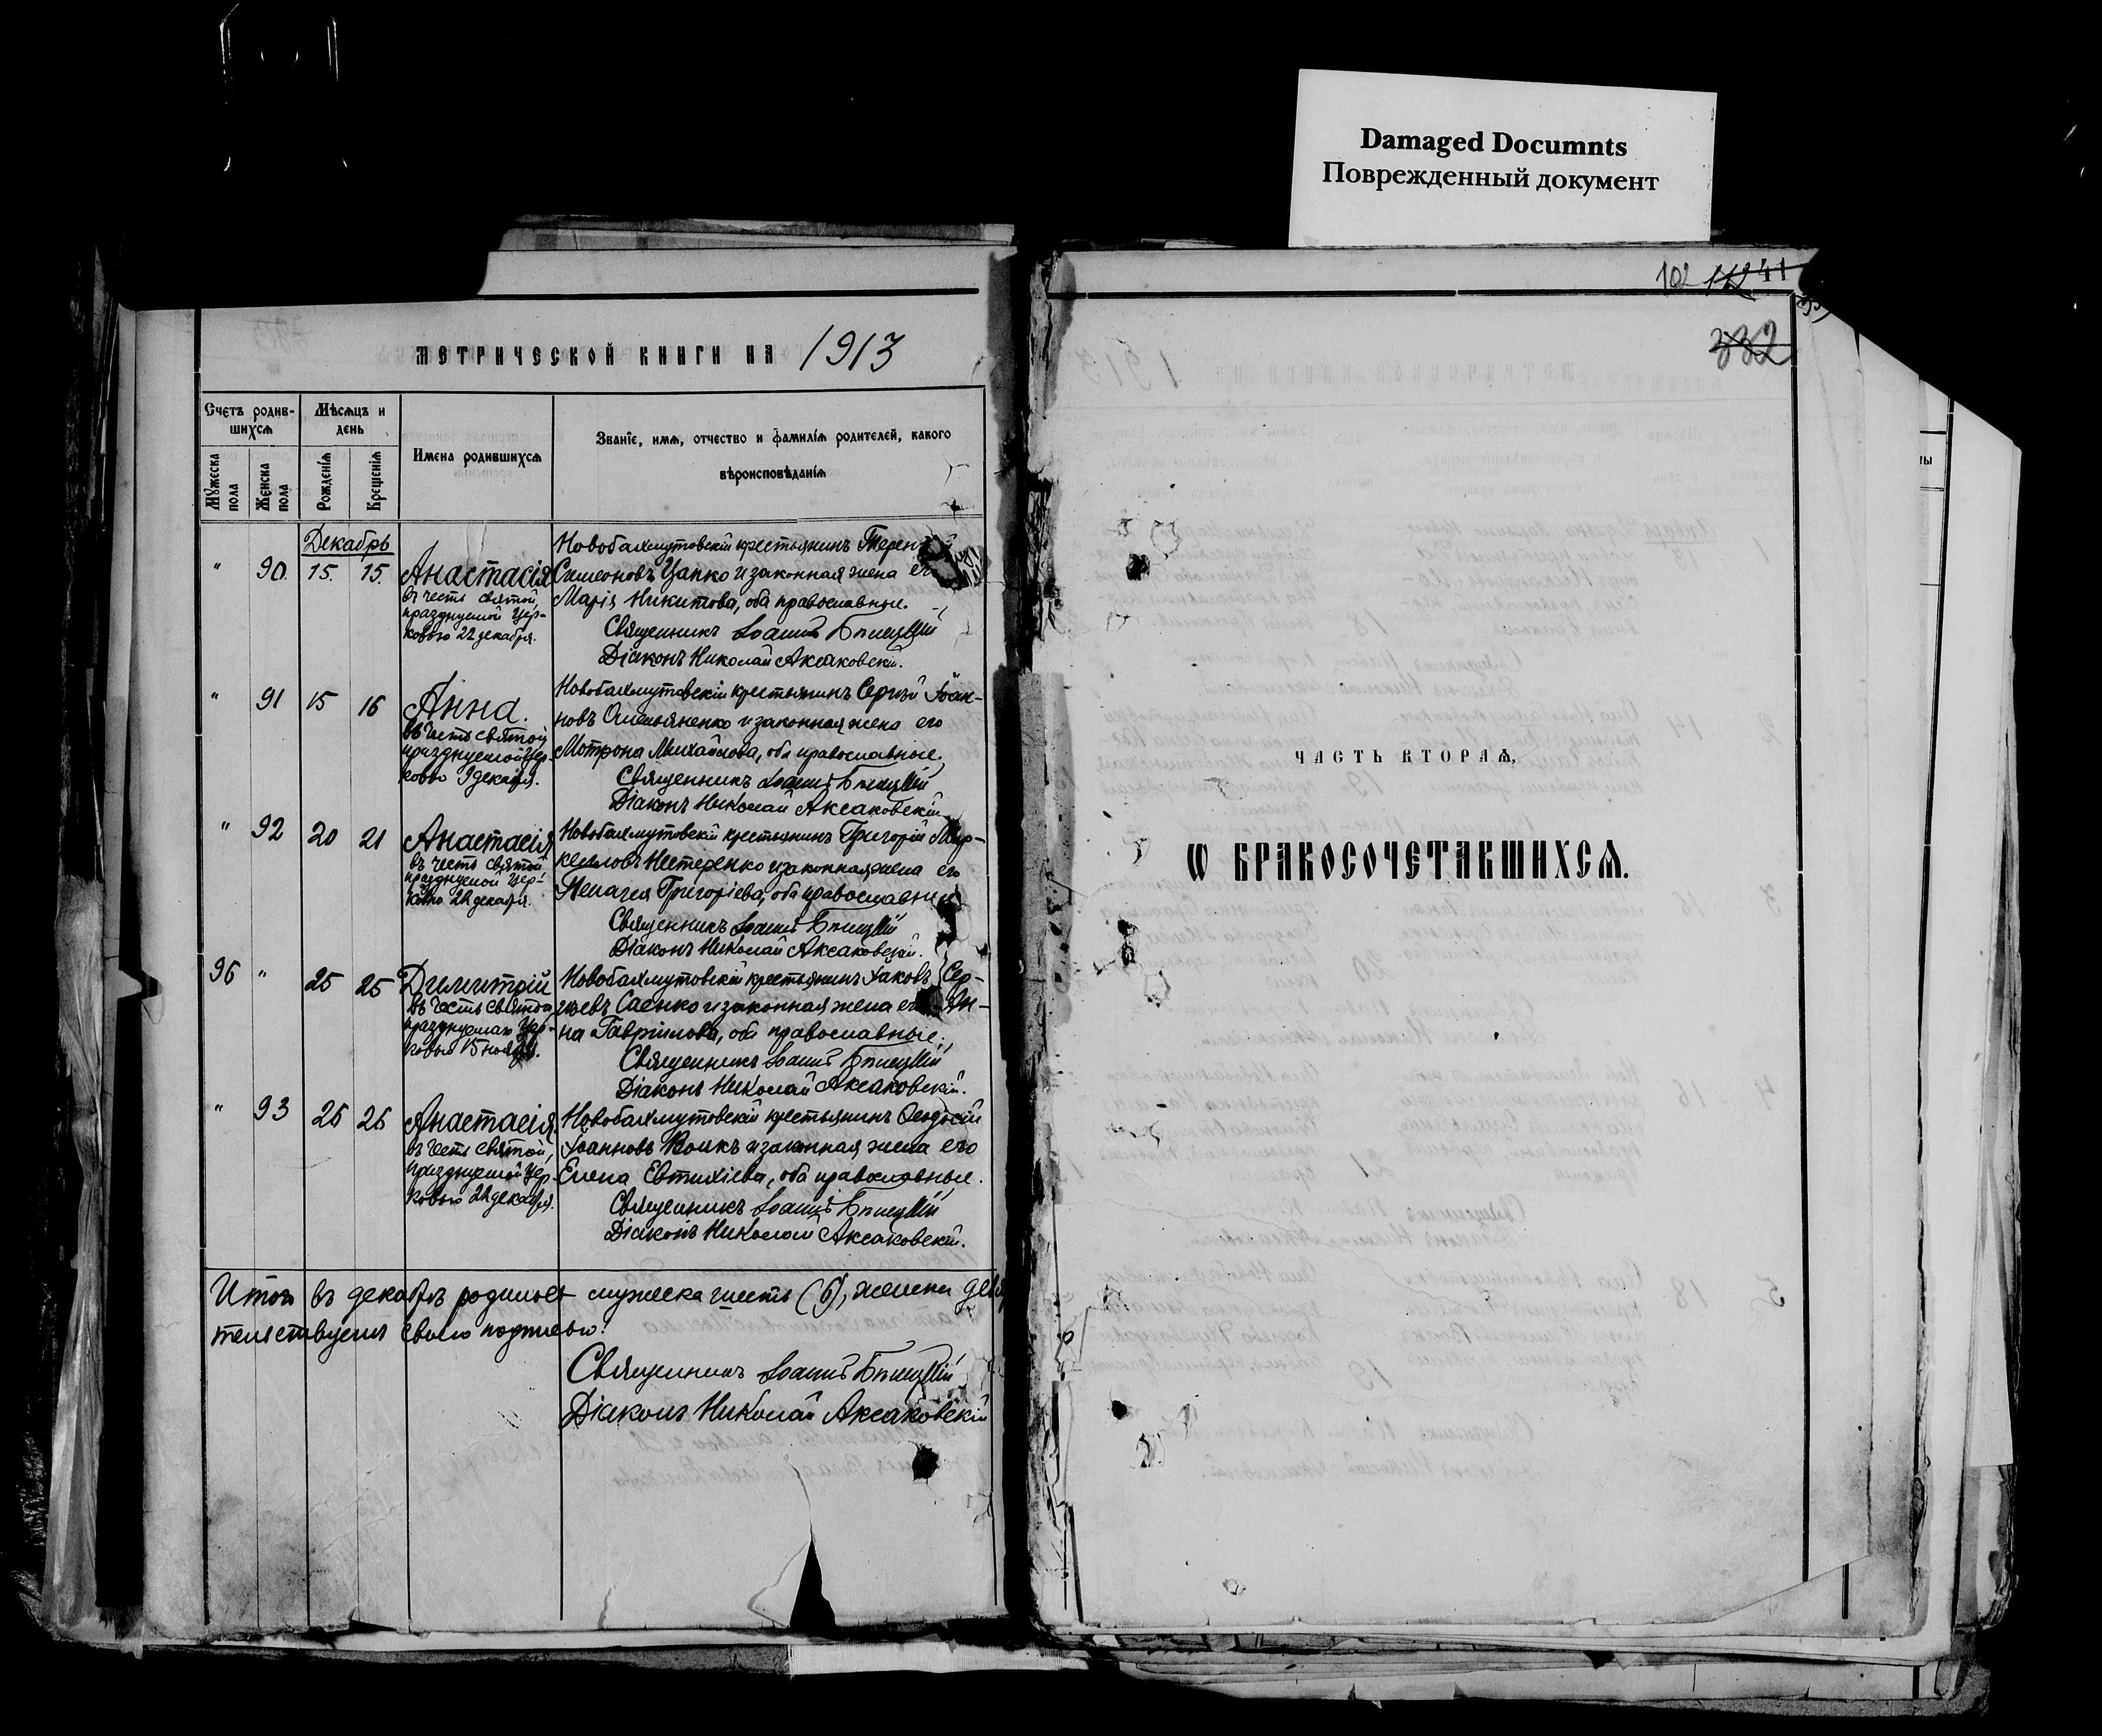 Damaged Documnts
Поврежденный документ
102 112 41
332
метрической книги на 1913
Счетъ родив-
шихсѧ
Мужеска
пола
Женска
пола
Мѣсѧцъ и
день
Рожденїѧ
Крещенїѧ
Имена родившихсѧ
Званїе, имѧ, отчество и фамилїѧ родителей, какого
вѣроисповѣданїѧ
Декабрь
" 90. 15. 15.
Анастасія
въ честь святой,
празднуемой Цер-
ковью 22 декабря.
Новобахмутовскій крестьянинъ Терен
Симеоновъ Цапко и законная жена его
Марія Никитова, оба православные.
Священникъ Іоаннъ
Діаконъ Николай Аксаковскій.
" 91 15 16
Анна.
въ честь святой
празднуемой Цер-
ковью 9 декабря.
Новобахмутовскій крестьянинъ Сергій Іоан-
новъ Омельяненко и законная жена его
Мотрона Михайлова, оба православные.
Священникъ Іоаннъ
Діаконъ Николай Аксаковскій.
" 92 20 21
Анастасія
въ честь святой,
празднуемой Цер-
ковью 22 декабря.
Новобахмутовскій крестьянинъ Григорій Мар-
келловъ Нестеренко и законная жена его
Пелагея Григоріева, оба православные
Священникъ Іоаннъ
Діаконъ Николай Аксаковскій.
96 " 25 25
Димитрій
въ честь святого
празднуемаго Цер-
ковью 15 ноября.
Новобахмутовскій крестьянинъ Іаковъ Сер-
гіевъ Саенко и законная жена его Ан-
на Гавріилова, оба православные.
Священникъ Іоаннъ
Діаконъ Николай Аксаковскій.
" 93 25 26
Анастасія
въ честь святой,
празднуемой Цер-
ковью 22 декабря.
Новобахмутовскій крестьянинъ Ѳеодосій
Іоанновъ Волкъ и законная жена его
Елена Евтихіева, оба православные.
Священникъ Іоаннъ
Діаконъ Николай Аксаковскій.
Итого въ декабрѣ родилось мужеска шесть (6), женска
тельствуемъ своею подписью:
Священникъ Іоаннъ
Діаконъ Николай Аксаковскій
ЧАСТЬ ВТОРАѦ,
Ѡ БРАКОСОЧЕТАВШИХСѦ.